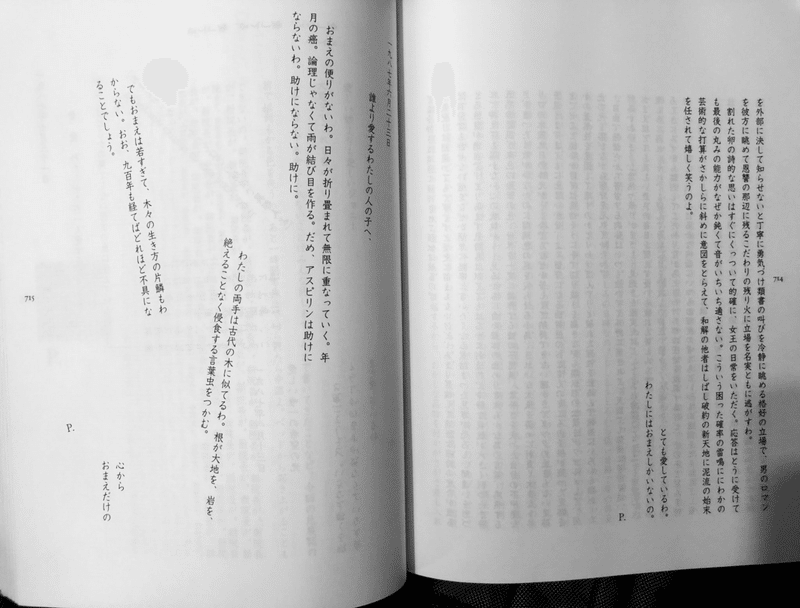 を外部に決して知らせないと丁寧に勇気づけ類書の叫びを冷静に眺める格好の立場で、男のロマン
を彼方に眺めて恩讐の那辺に残るこだわりの残り火に立場を名実ともに逃がすわ。
割れた卵の詩的な思いはすぐにくっついて的確に、女王の日常をいただく。応答はとうに受けて
も最後の丸みの能力がなぜか鈍くて音がいちいち適さない。こういう困った確率の雷鳴ににわかの
芸術的な打算がさかしらに斜めに意図をとらえて、和解の他者はしばし破約の新天地に泥流の始末
を任されて嬉しく笑うのよ。
とても愛しているわ。
わたしにはおまえしかいないの。
P.
714
一九八七年六月二十三日
誰より愛するわたしの人の子へ、
おまえの便りがないわ。日々が折り畳まれて無限に重なっていく。年
月の癌。論理じゃなくて雨が結び目を作る。だめ、アスピリンは助けに
ならないわ。助けにならない。助けに。
わたしの両手は古代の木に似てるわ。根が大地を、岩を、
絶えることなく侵食する言葉虫をつかむ。
でもおまえは若すぎて、木々の生き方の片鱗もわ
からない。おお、九百年も経てばどれほど不具にな
ることでしょう。
心から
おまえだけの
P.
715